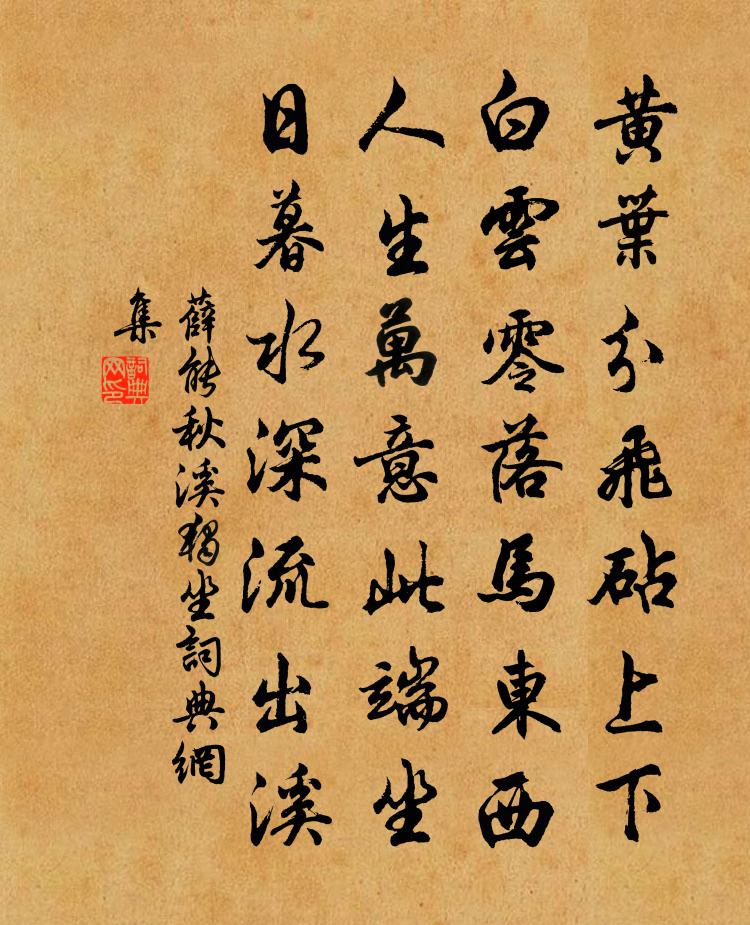 黃葉分飛砧上下
白雲零落馬東西
人生萬意此端坐
日暮水深流出溪
薛能秋溪獨坐詞典網
集
詞典
网印